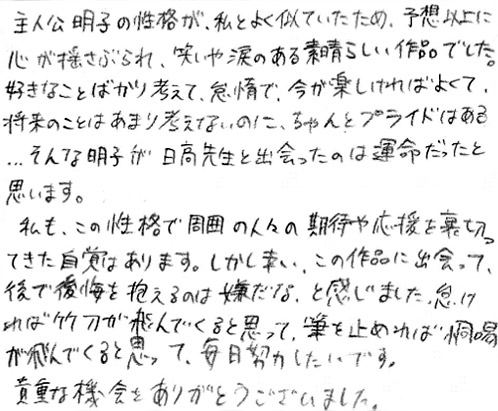 主人公明子の性格が、私とよく似ていたため、予想以上に
心が揺さぶられ、笑いや涙のある素晴らしい作品でした。
好きなことばかり考えて、怠惰で、今が楽しければよくて、
将来のことはあまり考えてないのに、ちゃんとプライドはある
…そんな明子が日高先生と出会ったのは運命だったと
思います。
私も、この性格で周囲の人々の期待や応援を裏切っ
てきた自覚はあります。しかし幸い、この作品に出会って、
後で後悔を抱えるのは嫌だな、と感じました。怠け
れば竹刀が飛んでくると思って、筆を止めれば恫喝
が飛んでくると思って、毎日努力したいです。
貴重な機会をありがとうございました。